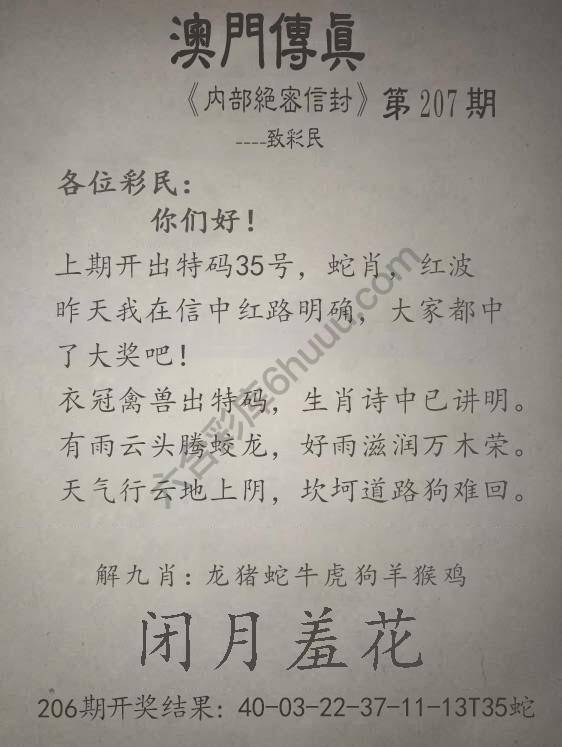 澳門傳真
《内部絕密信封》第207期
----致彩民
各位彩民：
你们好！
上期开出特码35号，蛇肖，红波
昨天我在信中红路明确，大家都中
了大奖吧！
衣冠禽兽出特码，生肖诗中已讲明。
有雨云头腾蛟龙，好雨滋润万木荣。
天气行云地上阴，坎坷道路狗难回。
六合彩库6huuu.com
解九肖：龙猪蛇牛虎狗羊猴鸡
闭月羞花
206期开奖结果：40-03-22-37-11-13T35蛇